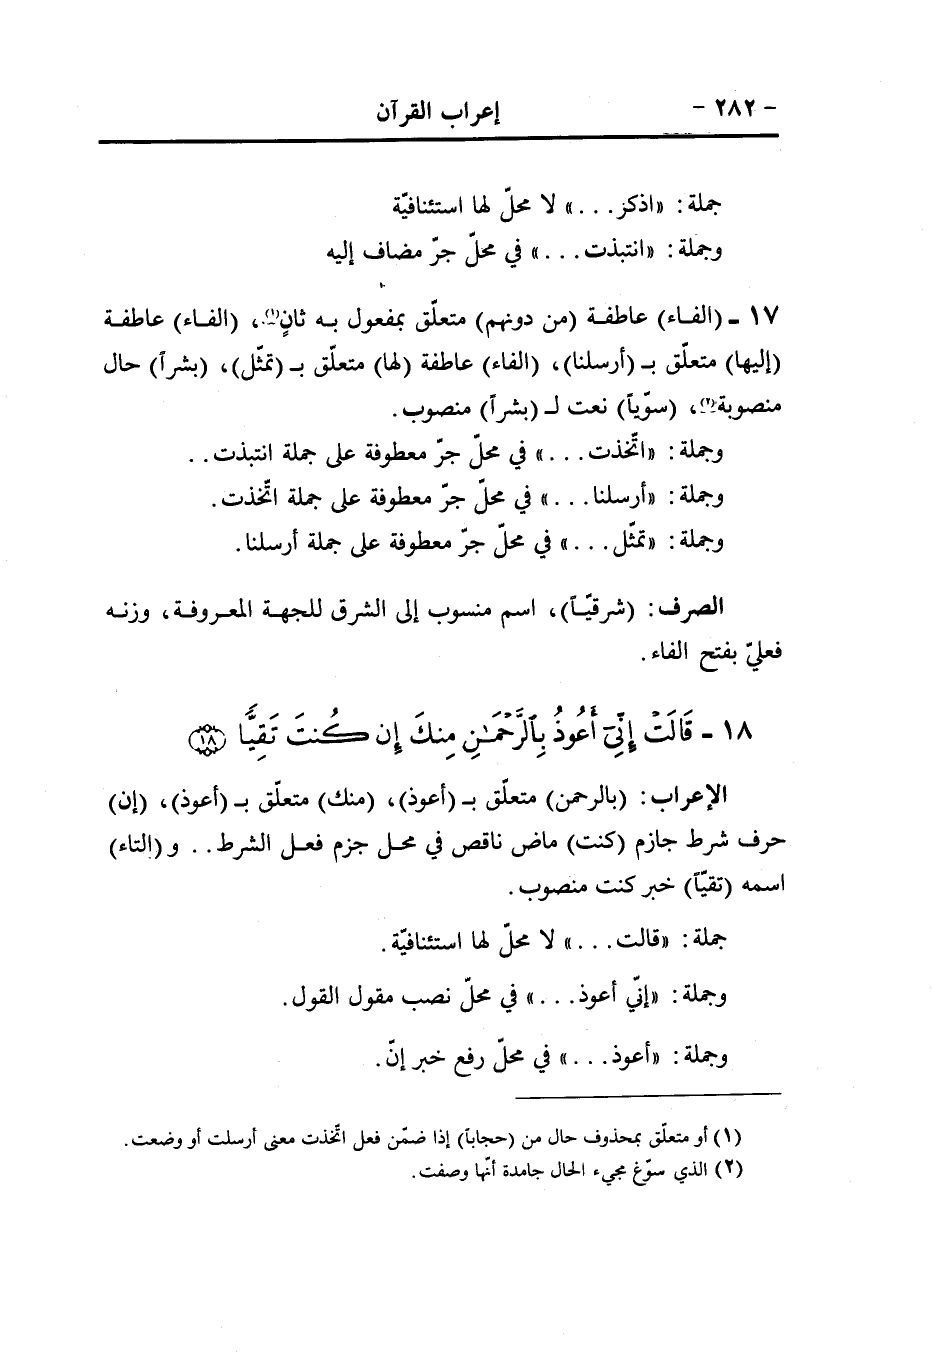 - ٢٨٢ - إعراب القرآن
جملة: «اذكر. . .» لا محلّ لها استئنافيّة
وجملة: «انتبذت. . .» في محلّ جرّ مضاف إليه
١٧ - (الفاء) عاطفة (من دونهم) متعلّق بمفعول به ثانٍ(١)، (الفاء) عاطفة
(إليها) متعلّق بـ (أرسلنا)، (الفاء) عاطفة (لها) متعلّق بـ (تمثّل)، (بشراً) حال
منصوبة(٢)، (سوّياً) نعت لـ (بشراً) منصوب.
وجملة: «اتّخذت. . .» في محلّ جرّ معطوفة على جملة انتبذت. .
وجملة: «أرسلنا. . .» في محلّ جرّ معطوفة على جملة اتّخذت.
وجملة: «تمثّل. . .» في محلّ جرّ معطوفة على جملة أرسلنا.
الصرف: (شرقيّاً)، اسم منسوب إلى الشرق للجهة المعروفة، وزنه
فعليّ بفتح الفاء.
١٨ - قَالَتْ إِنِّىٓ أَعُوذُ بِٱلرَّحْمَـٰنِ مِنكَ إِن كُنتَ تَقِيًّا ١٨
الإعراب: (بالرحمن) متعلّق بـ (أعوذ)، (منك) متعلّق بـ (أعوذ)، (إن)
حرف شرط جازم (كنت) ماض ناقص في محل جزم فعل الشرط. . و (التاء)
اسمه (تقيّاً) خبر كنت منصوب.
جملة: «قالت. . .» لا محلّ لها استئنافيّة.
وجملة: «إنّي أعوذ. . .» في محلّ نصب مقول القول.
وجملة: «أعوذ. . .» في محلّ رفع خبر إنّ.
(١) أو متعلّق بمحذوف حال من (حجاباً) إذا ضمّن فعل اتّخذت معنى أرسلت أو وضعت.
(٢) الذي سوّغ مجيء الحال جامدة أنّها وصفت.